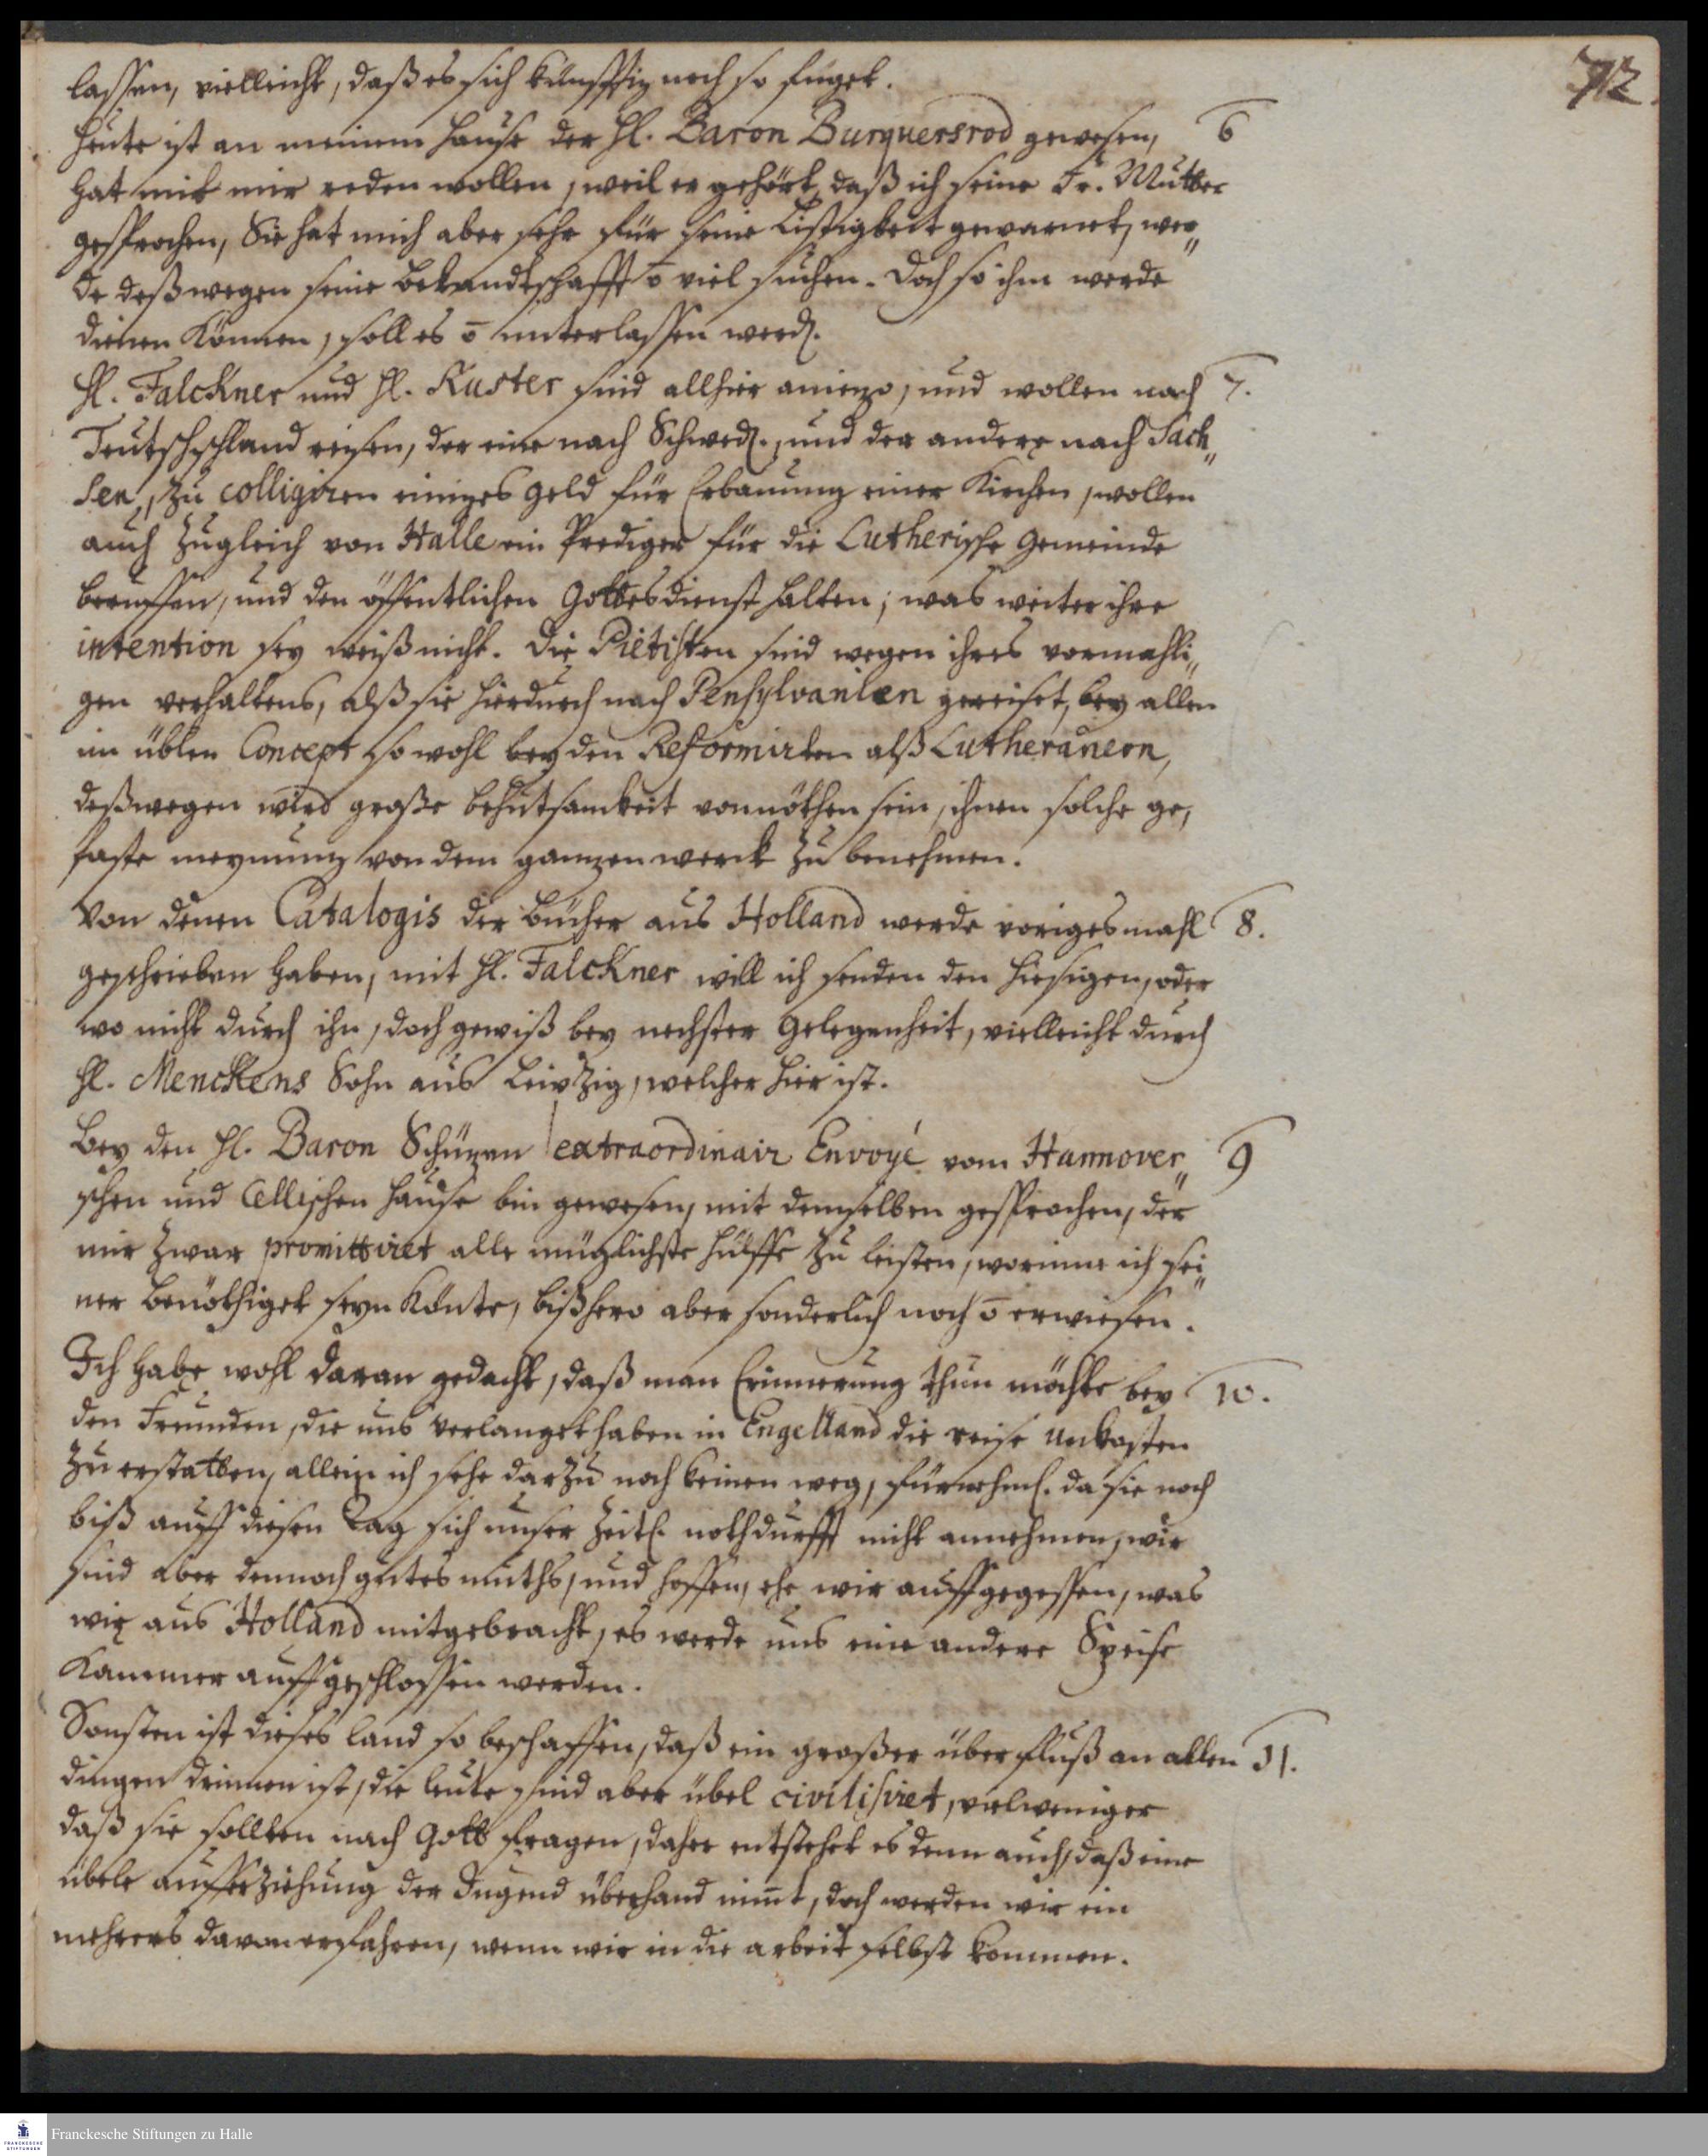 72.
lassen, vielleicht, daß es sich künfftig noch so füget.
Heute ist an meinem Hause der H. Baron Burquersrod gewesen, 6
hat mit mir reden wollen, weil er gehört, daß ich seine Fr. Mutter
gesprochen, Sie hat mich aber sehr für seine Listigkeit gewarnet, wer„
de deßwegen seine bekandtschafft ō viel suchen. Doch so ihm werde
dienen können, soll es ō unterlassen werd.
H. Falckner und H. Kuster sind allhier aniezo, und wollen nach 7.
Teutschschland reisen, der eine nach Schwed., und der andere nach Sach„
sen, zu colligiren einiges geld für Erbauung einer Kirchen, wollen
auch zugleich von Halle ein Prediger für die Lutherische gemeinde
beruffen, und den öffentlichen Gottesdienst halten; was weiter ihre
intention sey weiß nicht. Die Piëtisten sind wegen ihres vormahli„
gen verhaltens, alß sie hierdurch nach Pensylvanien gereiset, bey allen
im üblen Concept so wohl bey den Reformirten alß Lutheranern,
deßwegen wird große behutsamkeit vonnöthen sein, ihnen solche ge,
faste meynung von dem ganzen werck zu benehmen.
Von denen Catalogis der bücher aus Holland werde voriges mahl 8.
geschrieben haben, mit H. Falckner will ich senden den hiesigen, oder
wo nicht durch ihn, doch gewiß bey nechster gelegenheit, vielleicht durch
H. Menckens Sohn aus Leipzig, welcher hier ist.
Bey den H. Baron Schüzen extraordinair Envoyé vom Hannover„ 9
schen und Cellischen Hause bin gewesen, mit demselben gesprochen, der
mir zwar promittiret alle müglichste hülffe zu leisten, worinne ich sei„
ner benöthiget seyn könte, bißhero aber sonderlich noch ō erwiesen.
Ich habe wohl daran gedacht, daß man Erinnerung thun möchte bey 10.
den Freunden, die uns verlanget haben in Engelland die reise unkosten
zu erstatten, allein ich sehe darzu noch keinen weg, fürnehml. da sie noch
biß auff diesen Tag sich unser zeitl. nothdurfft nicht annehmen, wir
sind aber dennoch gutes muths, und hoffen, ehe wir auffgegessen, was
wir aus Holland mitgebracht, es werde uns eine andere Speise
Kammer auffgeschlossen werden.
Sonsten ist dieses land so beschaffen, daß ein großer überfluß an allen 11.
dingen drinnen ist, die leute sind aber übel civilisiret, vielweniger
daß sie sollten nach Gott fragen, daher entstehet es denn auch, daß eine
übele aufferziehung der Jugend überhand nim̄t, doch werden wir ein
mehrers davon erfahren, wenn wir in die arbeit selbst kommen.
FRANCKESCHE
STIFTUNGEN
Franckesche Stiftungen zu Halle